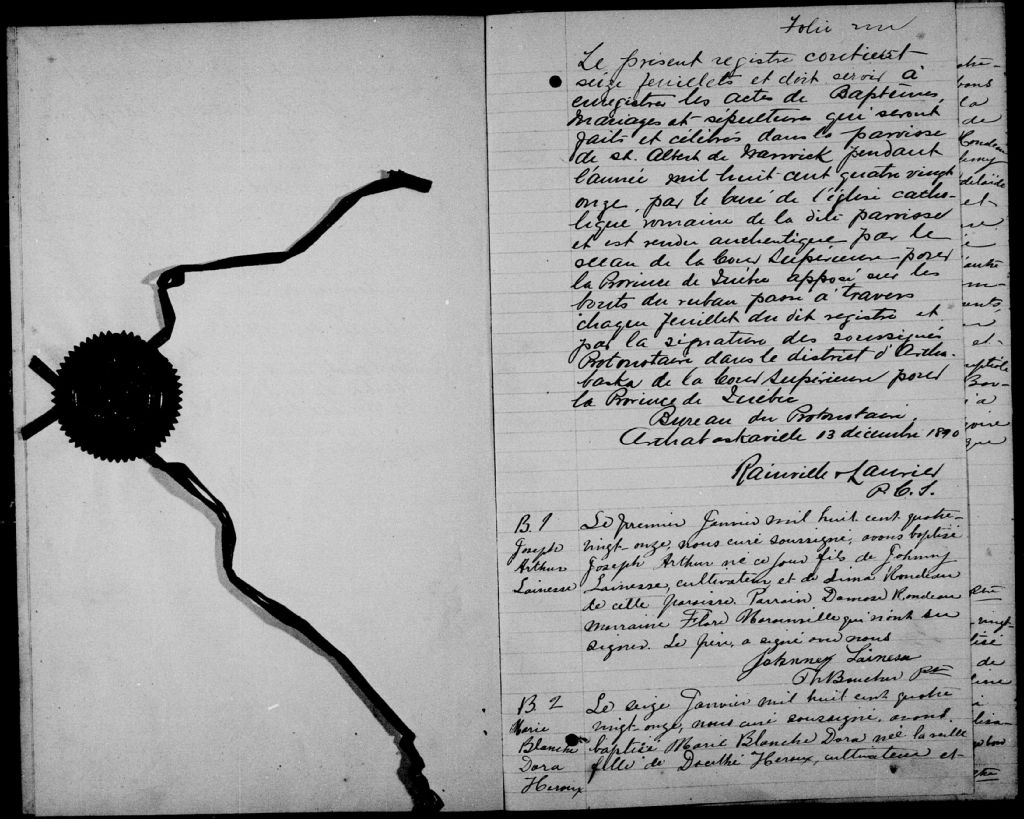 Folio un
Le présent registre contient
seize feuillets et doit servir à
enregistrer les actes de Baptêmes,
Mariages et sépultures qui seront
faits et célébrés dans la paroisse
de St. Albert de Warwick pendant
l'année mil huit cent quatre vingt
onze, par le Curé de l'église catho-
lique romaine de la dite paroisse
et est rendu authentique par le
sceau de la Cour Supérieure pour
la Province de Québec apposé sur les
bouts du ruban passé à travers
chaque feuillet du dit registre et
par la signature des soussignés
Protonotaire dans le district d'Artha-
baska de la Cour Supérieure pour
la Province de Québec
Bureau du Protonotaire
Arthabaskaville 13 décembre 1890
Rainville & Laurier
P. C. S.
B. 1
Joseph
Arthur
Lainesse
Le premier Janvier mil huit cent quatre-
vingt-onze, nous curé soussigné, avons baptisé
Joseph Arthur né ce jour fils de Johnny
Lainesse, cultivateur, et de Lima Rondeau
de cette paroisse. Parrain Damase Rondeau
marraine Flore qui n'ont su
signer. Le père, a signé avec nous
Johnney Lainess
Th Boucher Ptre
B 2
Marie
Blanche
Dora
Heroux
Le seize Janvier mil huit cent quatre
vingt-onze, nous curé soussigné, avons
baptisé Marie Blanche Dora née la veille
fille de Heroux, cultivateur et